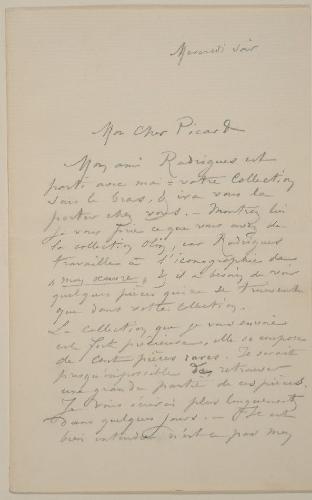 Mercredi soir
Mon cher Picard
Mon ami Rodrigues est
parti avec moi = votre collection
sous le bras, & ira vous la
porter chez vous. — Montrez lui
je vous prie ce que vous avez de
la collection, car Rodrigues
travaille à l'iconographie de
" mon œuvre, & il a besoin de voir
quelques pièces qui ne se trouvent
que dans votre collection.
La collection que je vous envoie
est fort précieuse, elle se compose
de cent pièces rares. Il serait
presqu'impossible de retrouver
une grande partie de ces pièces.
Je vous écrirai plus longuement
dans quelques jours. — Il est
bien entendu n'est ce pas mon